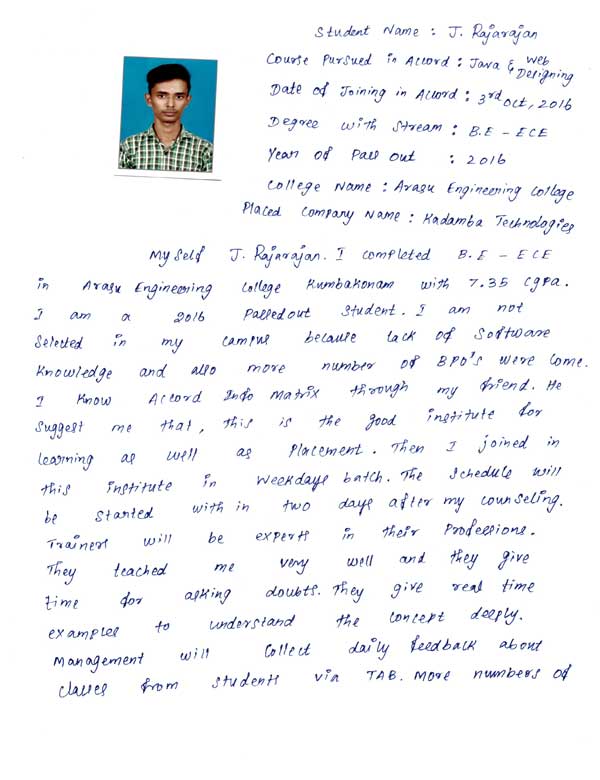 Student Name : J. Rajarajan
Course Pursued in Accord : Java & Web Designing
Date of Joining in Accord : 3rd Oct, 2016
Degree with Stream : B.E - ECE
Year of Pass Out : 2016
College Name : Arasu Engineering College
Placed Company Name : Kadamba Technologies
Myself J. Rajarajan. I completed B.E - ECE
in Arasu Engineering College Kumbakonam with 7.35 cgpa.
I am a 2016 Passedout student. I am not
selected in my campus because lack of Software
knowledge and also more number of BPO's were come.
I know Accord Info Matrix through my friend. He
suggest me that, this is the good institute for
learning as well as Placement. Then I joined in
this institute in Weekdays batch. The schedule will
be started with in two days after my counseling.
Trainers will be experts in their Professions.
They teached me very well and they give
time for asking doubts. They give real time
examples to understand the concept deeply.
Management will Collect daily feedback about
classes from students via TAB. More numbers of